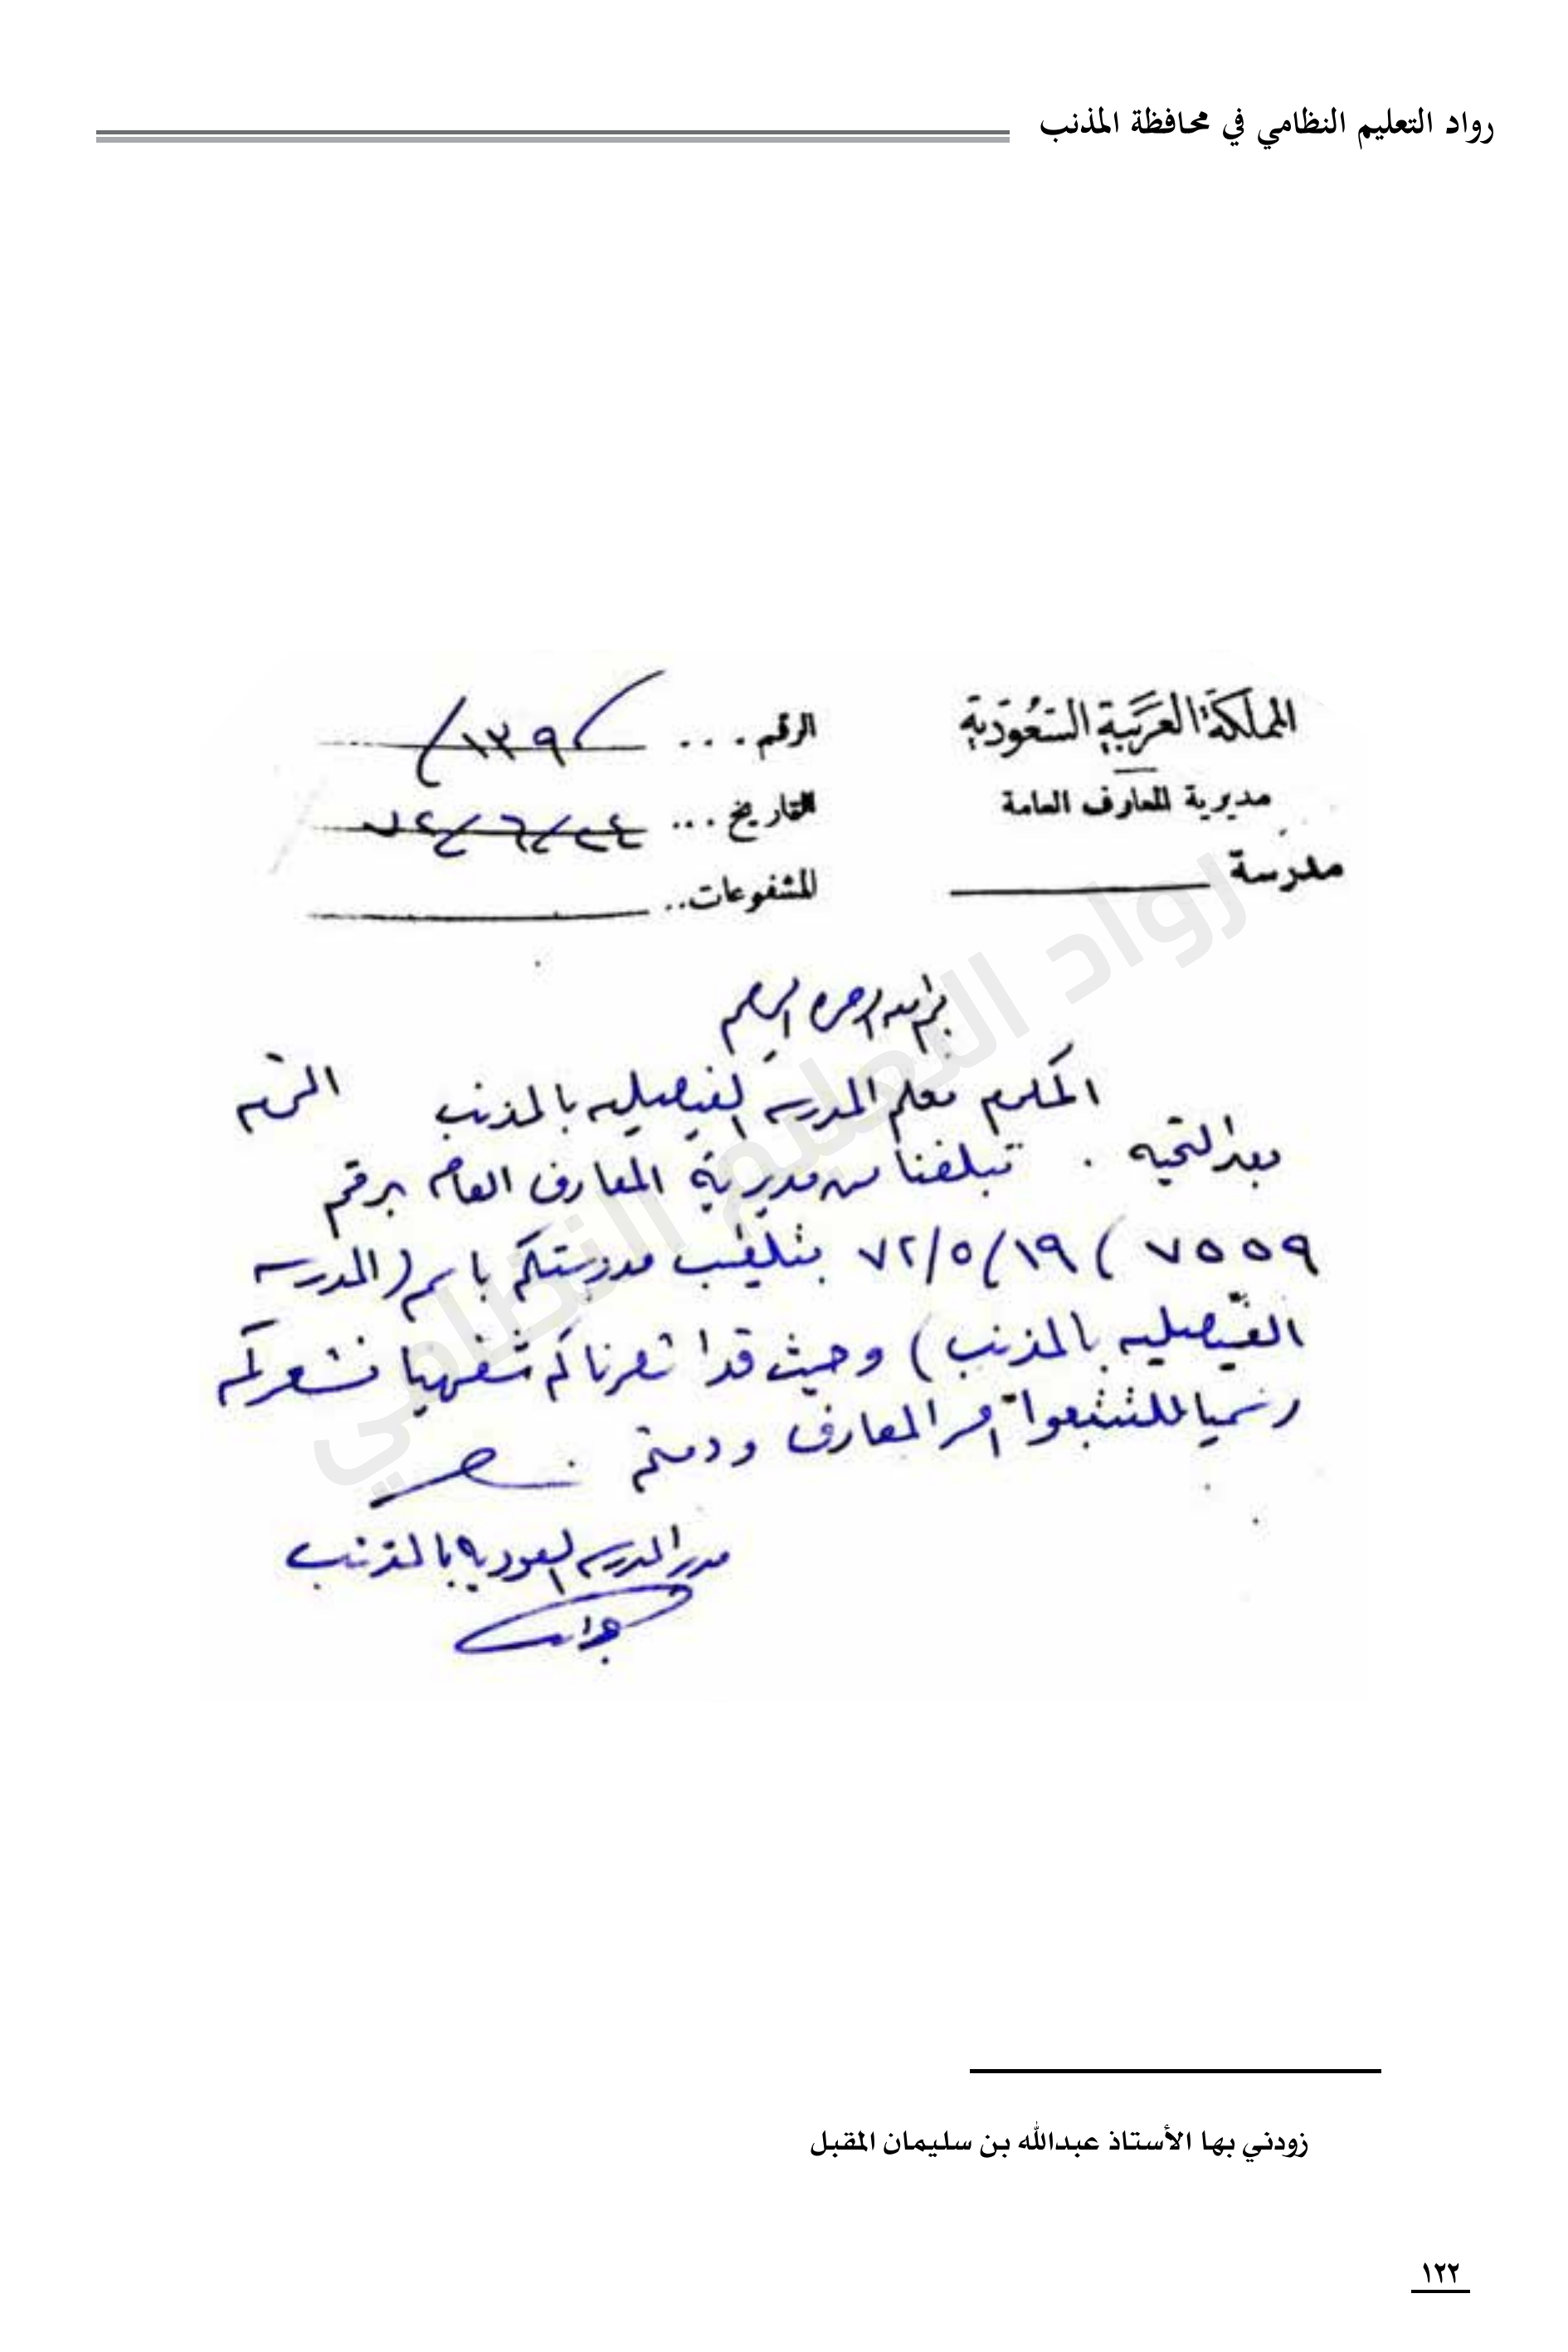 رواد التعليم النظامي في محافظة المذنب
المملكة العربية السعودية
مديرية المعارف العامة
مدرسة
الرقم ... ١٣٩
التاريخ ... ٢٤/٦/٧٢
المشفوعات..
بسم الله الرحمن الرحيم
المكرم معلم المدرسه الفيصليه بالمذنب المحترم
بعد التحيه . تبلغنا من مديرية المعارف العامه برقم
٧٥٥٩ / ١٩/٥/٧٢ بتلقيب مدرستكم باسم (المدرسه
الفيصليه بالمذنب) وحيث قد اشعرناكم شفهيا نشعركم
رسميا لتتبعوا امر المعارف ودمتم
مدير المدرسه السعوديه بالمذنب
رواد التعليم النظامي
زودني بها الأستاذ عبدالله بن سليمان المقبل
١٢٢